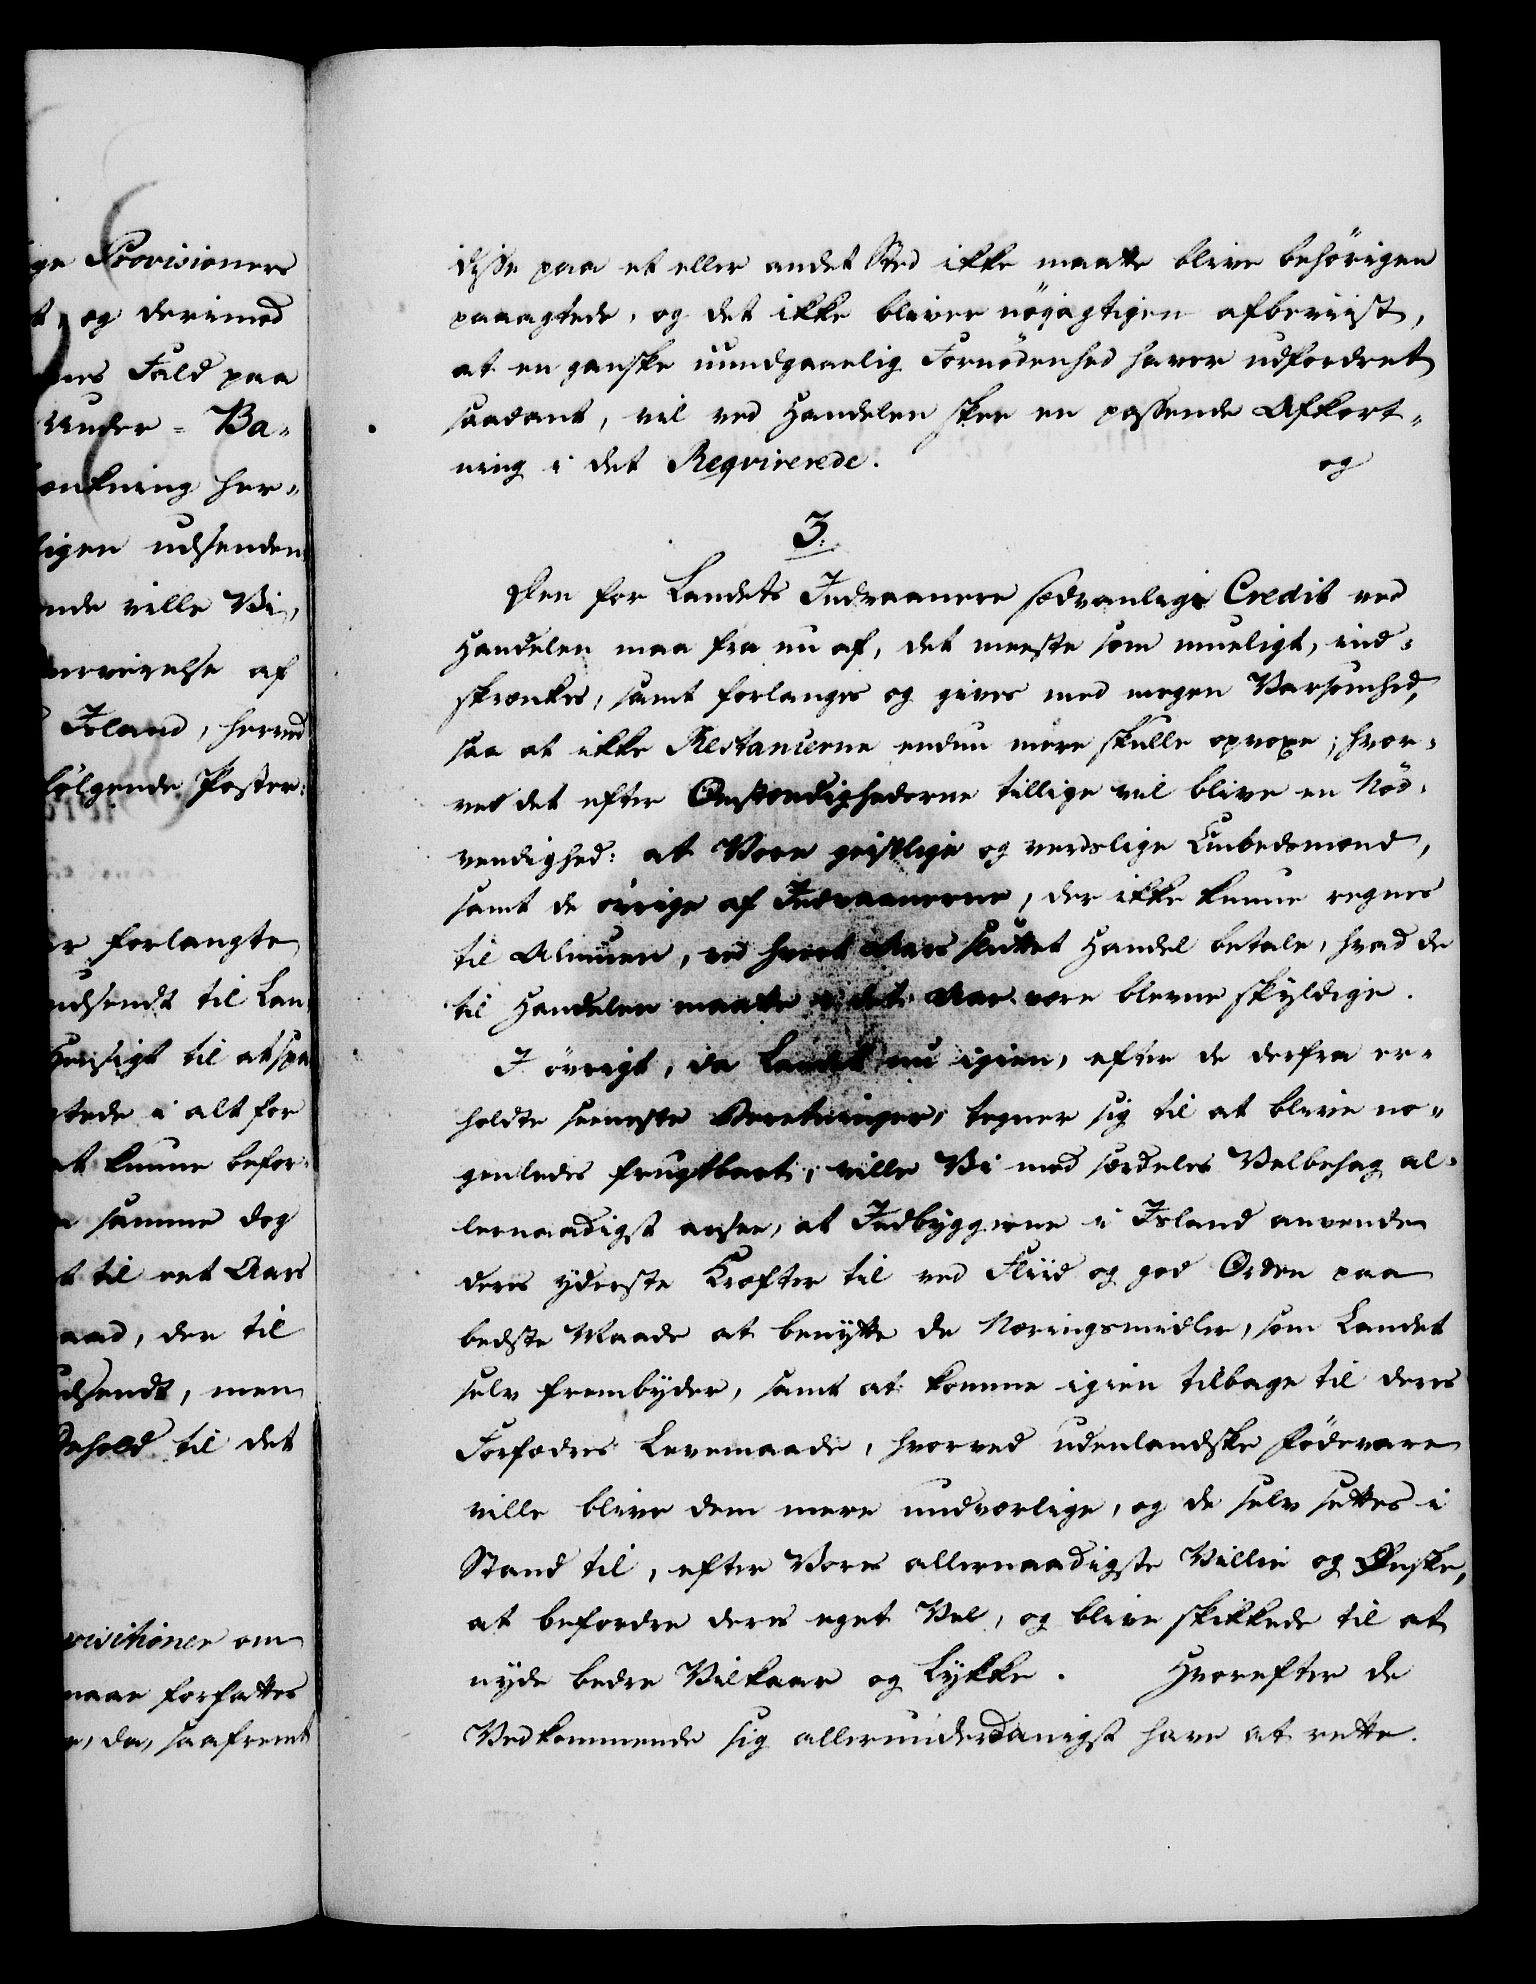 ge Provisioners
t, og derimod
Fald paa
Under = Ba-
her-
ligen udsenden
ende ville Vi,
af
Island, herved
følgende Poster:
er forlangte
udsendt til Lan
Hensigt til at spa
i alt for
at kunne befor-
samme dog
t til eet Aars
aad, der til
udsendt, men
Behold til det
visitioner om
naar forfattes
da, saafremt
disse paa et eller andet Sted ikke maatte blive behörigen
paaagtede, og det ikke bliver nöiagtigen afbeviist,
at en ganske uundgaaelig Fornödenhed haver udfordret
saadant, vil ved Handelen skee en passende Afkort-
ning i det Reqvirerede. og
3.
Den for Landets Indvaanere sædvanlige Credit ved
Handelen maa fra nu af, det meeste som mueligt, ind-
skrænkes, samt forlanges og gives med megen Varsomhed,
saa at ikke Restancerne endnu mere skulle opvoxe; hvor-
ved det efter Omstændighederne tillige vil blive en Nöd-
vendighed: at Vore geistlige og verdslige Embedsmænd,
samt de övrige af Indvaanerne, der ikke kunne regnes
til Almuen, ved hvert Aars sluttet Handel betale, hvad de
til Handelen maatte i det Aar være blevne skyldige.
I övrigt, da Landet nu igien, efter de derfra er-
holdte seeneste Beretninger, tegner sig til at blive no-
genledes frugtbart, ville Vi med særdeles Velbehag al-
lernaadigst ansee, at Indbyggerne i Island anvende
deres yderste Kræfter til ved Fliid og god Orden paa
bedste Maade at benytte de Næringsmidler, som Landet
selv frembyder, samt at komme igien tilbage til deres
Forfædres Levemaade, hvorved udenlandske Födevare
ville blive dem mere undværlige, og de selv sættes i
Stand til, efter Vores allernaadigste Villie og Önske,
at befordre deres eget Vel, og blive skikkede til at
nyde bedre Vilkaar og Lykke. Hvorefter de
Vedkommende sig allerunderdanigst have at rette.